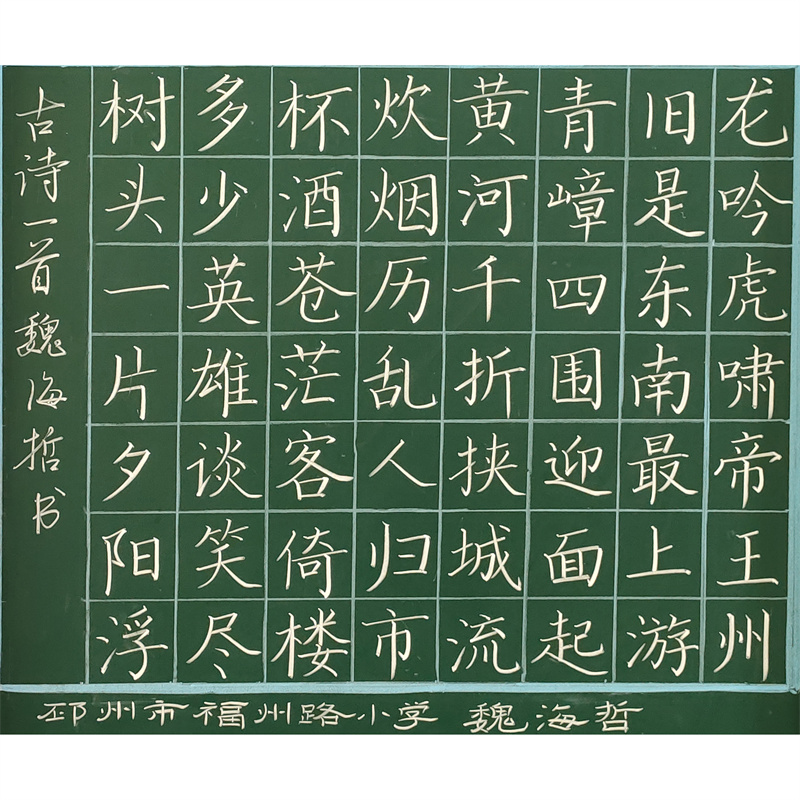 龙吟虎啸帝王州
旧是东南最上游
青嶂四围迎面起
黄河千折挟城流
炊烟历乱人归市
杯酒苍茫客倚楼
多少英雄谈笑尽
树头一片夕阳浮
古诗一首 魏海哲书
邳州市福州路小学 魏海哲